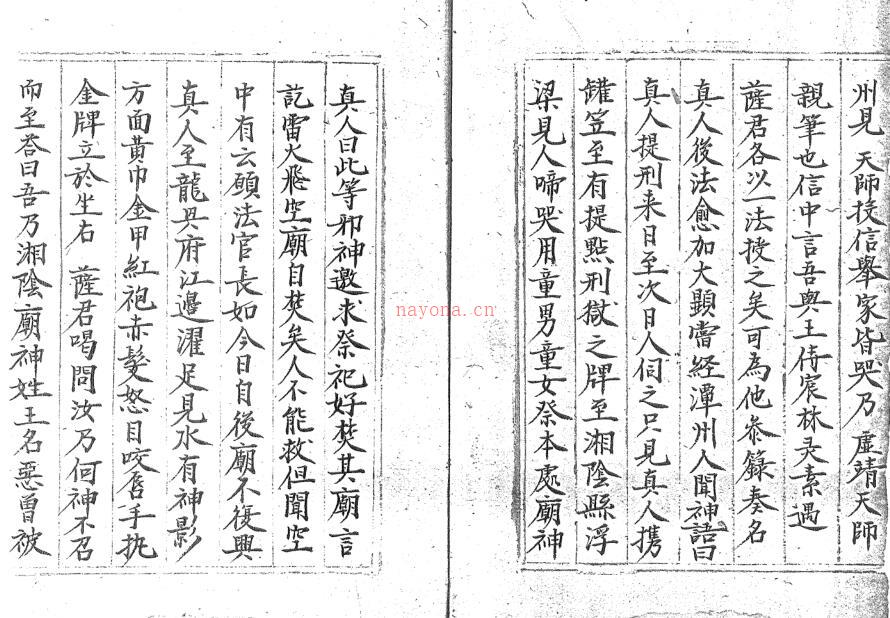 州見 天師投信舉家皆哭乃 虛靖天師
親筆也信中言吾與王侍宸林灵素遇
薩君各以一法授之矣可為他叅籙奏名
真人後法愈加大顯嘗經潭州人聞神語曰
真人提刑来日至次日人伺之只見真人携
罐笠至有提㸃刑獄之牌至湘陰縣浮
梁見人啼哭用童男童女祭本處廟神
真人曰此等邪神邀求祭祀好焚其廟言
訖雷火飛空廟自焚矣人不能救但聞空
中有云願法官長如今日自後廟不復興
真人至龍興府江邊濯足見水有神影
方面黄巾金甲紅袍赤髮怒目咬唇手执
金牌立於坐右 薩君喝問汝乃何神不召
而至荅曰吾乃湘陰廟神姓王名惡曾被
nayona.cn